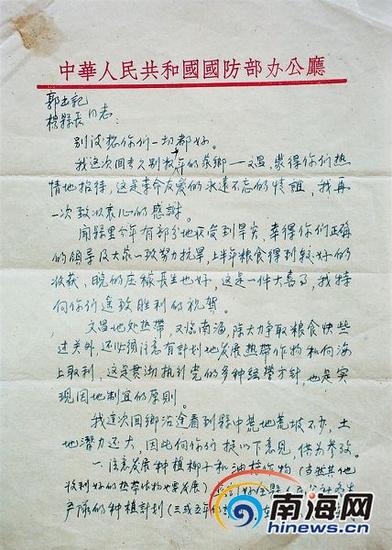 中華人民共和國國防部办公廳
郭书記
楊縣长 同志:
别后想你们一切都好。
我这次回去久别数年的家乡——文昌,蒙得你们热
情地招待,这是革命友爱的永远不忘的情誼,我再
一次致以衷心的感謝。
聞縣里今年有部分地区受到旱灾,幸得你们正确
的領导及大家一致努力抗旱,上半年粮食得到較好的
收获、晚的庄稼長生也好,这是一件大喜了,我特
向你们遥致胜利的祝賀。
文昌地处热带,又临南海,除大力争取粮食快些
过关外,还必須注意有計划地发展热带作物和向海
上取利,这是貫彻执行党的多种经营方針,也是实
現因地制宜的原則。
我这次回鄉沿途看到縣中荒地荒坡不少,土
地潜力还大,因此向你们提以下意見,供为参攷。
一、注意发展种植椰子和油棕作物(当然其他
收利好的热带作物也要发展)
产隊的种植計划(三或五年的
南海网
HINEWS.CN